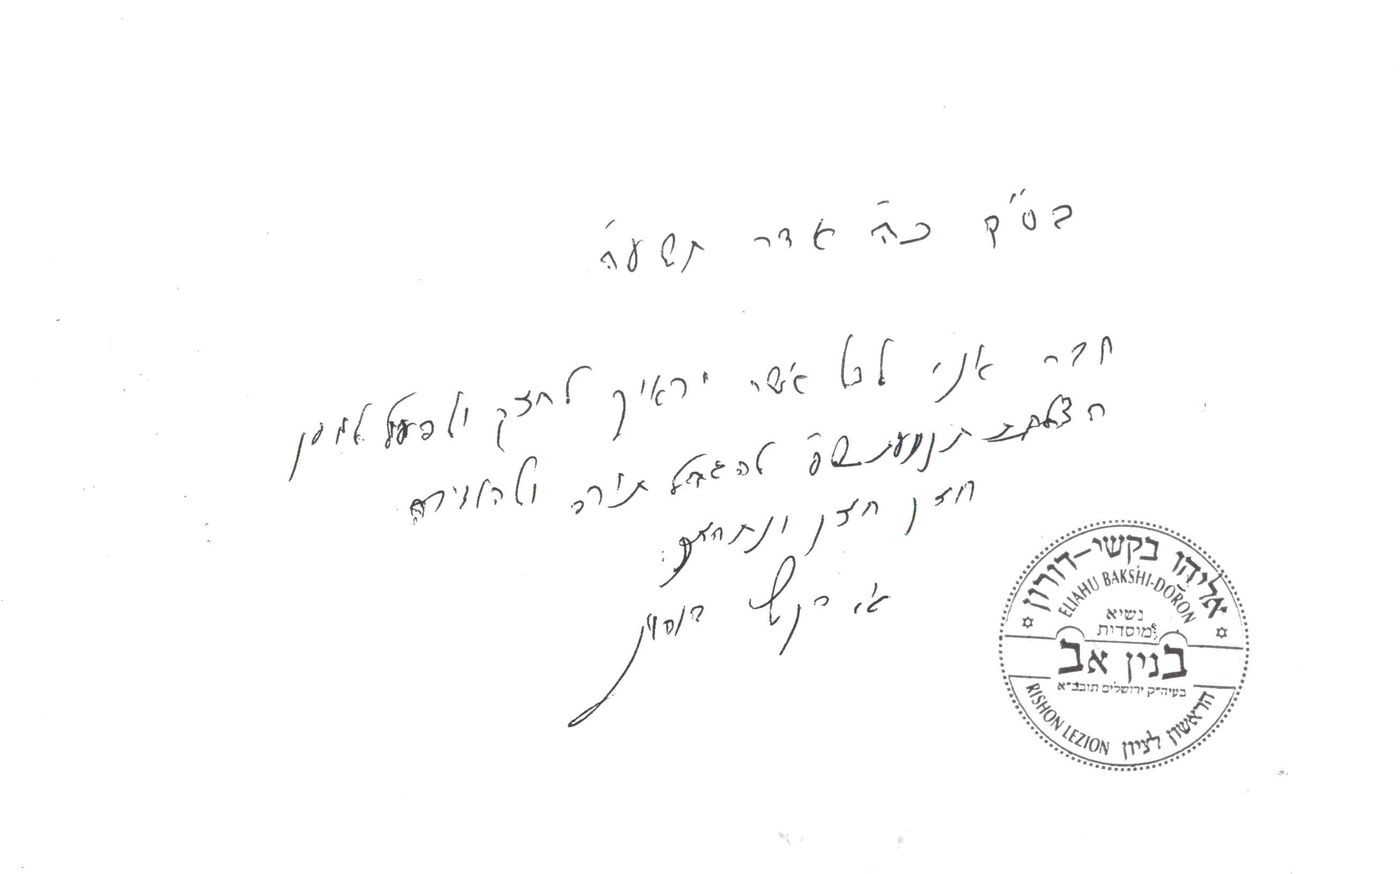 בס"ק כה אדר תשעה
חבר אני לכל אשר יראיך לחזק ולפעול למען
להגדיל תורה ולהאדירה
חזק חזק ונתחזק
א. בקשי דורון
אליהו בקשי-דורון
ELIAHU BAKSHI-DORON
נשיא
מוסדות
בנין אב
בעיה״ק ירושלים תובב״א
RISHON LEZION הראשון לציון